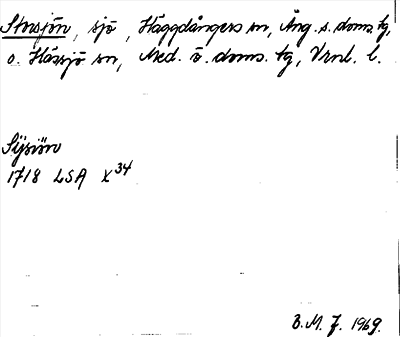 Storsjön, sjö, Häggdångers sn, Ång. s. doms. tg,
o. Hässjö sn, Med. ö. doms. tg, Vrnl. l.
Sijsiön
1718 LSA X34
B.M.J. 1969.